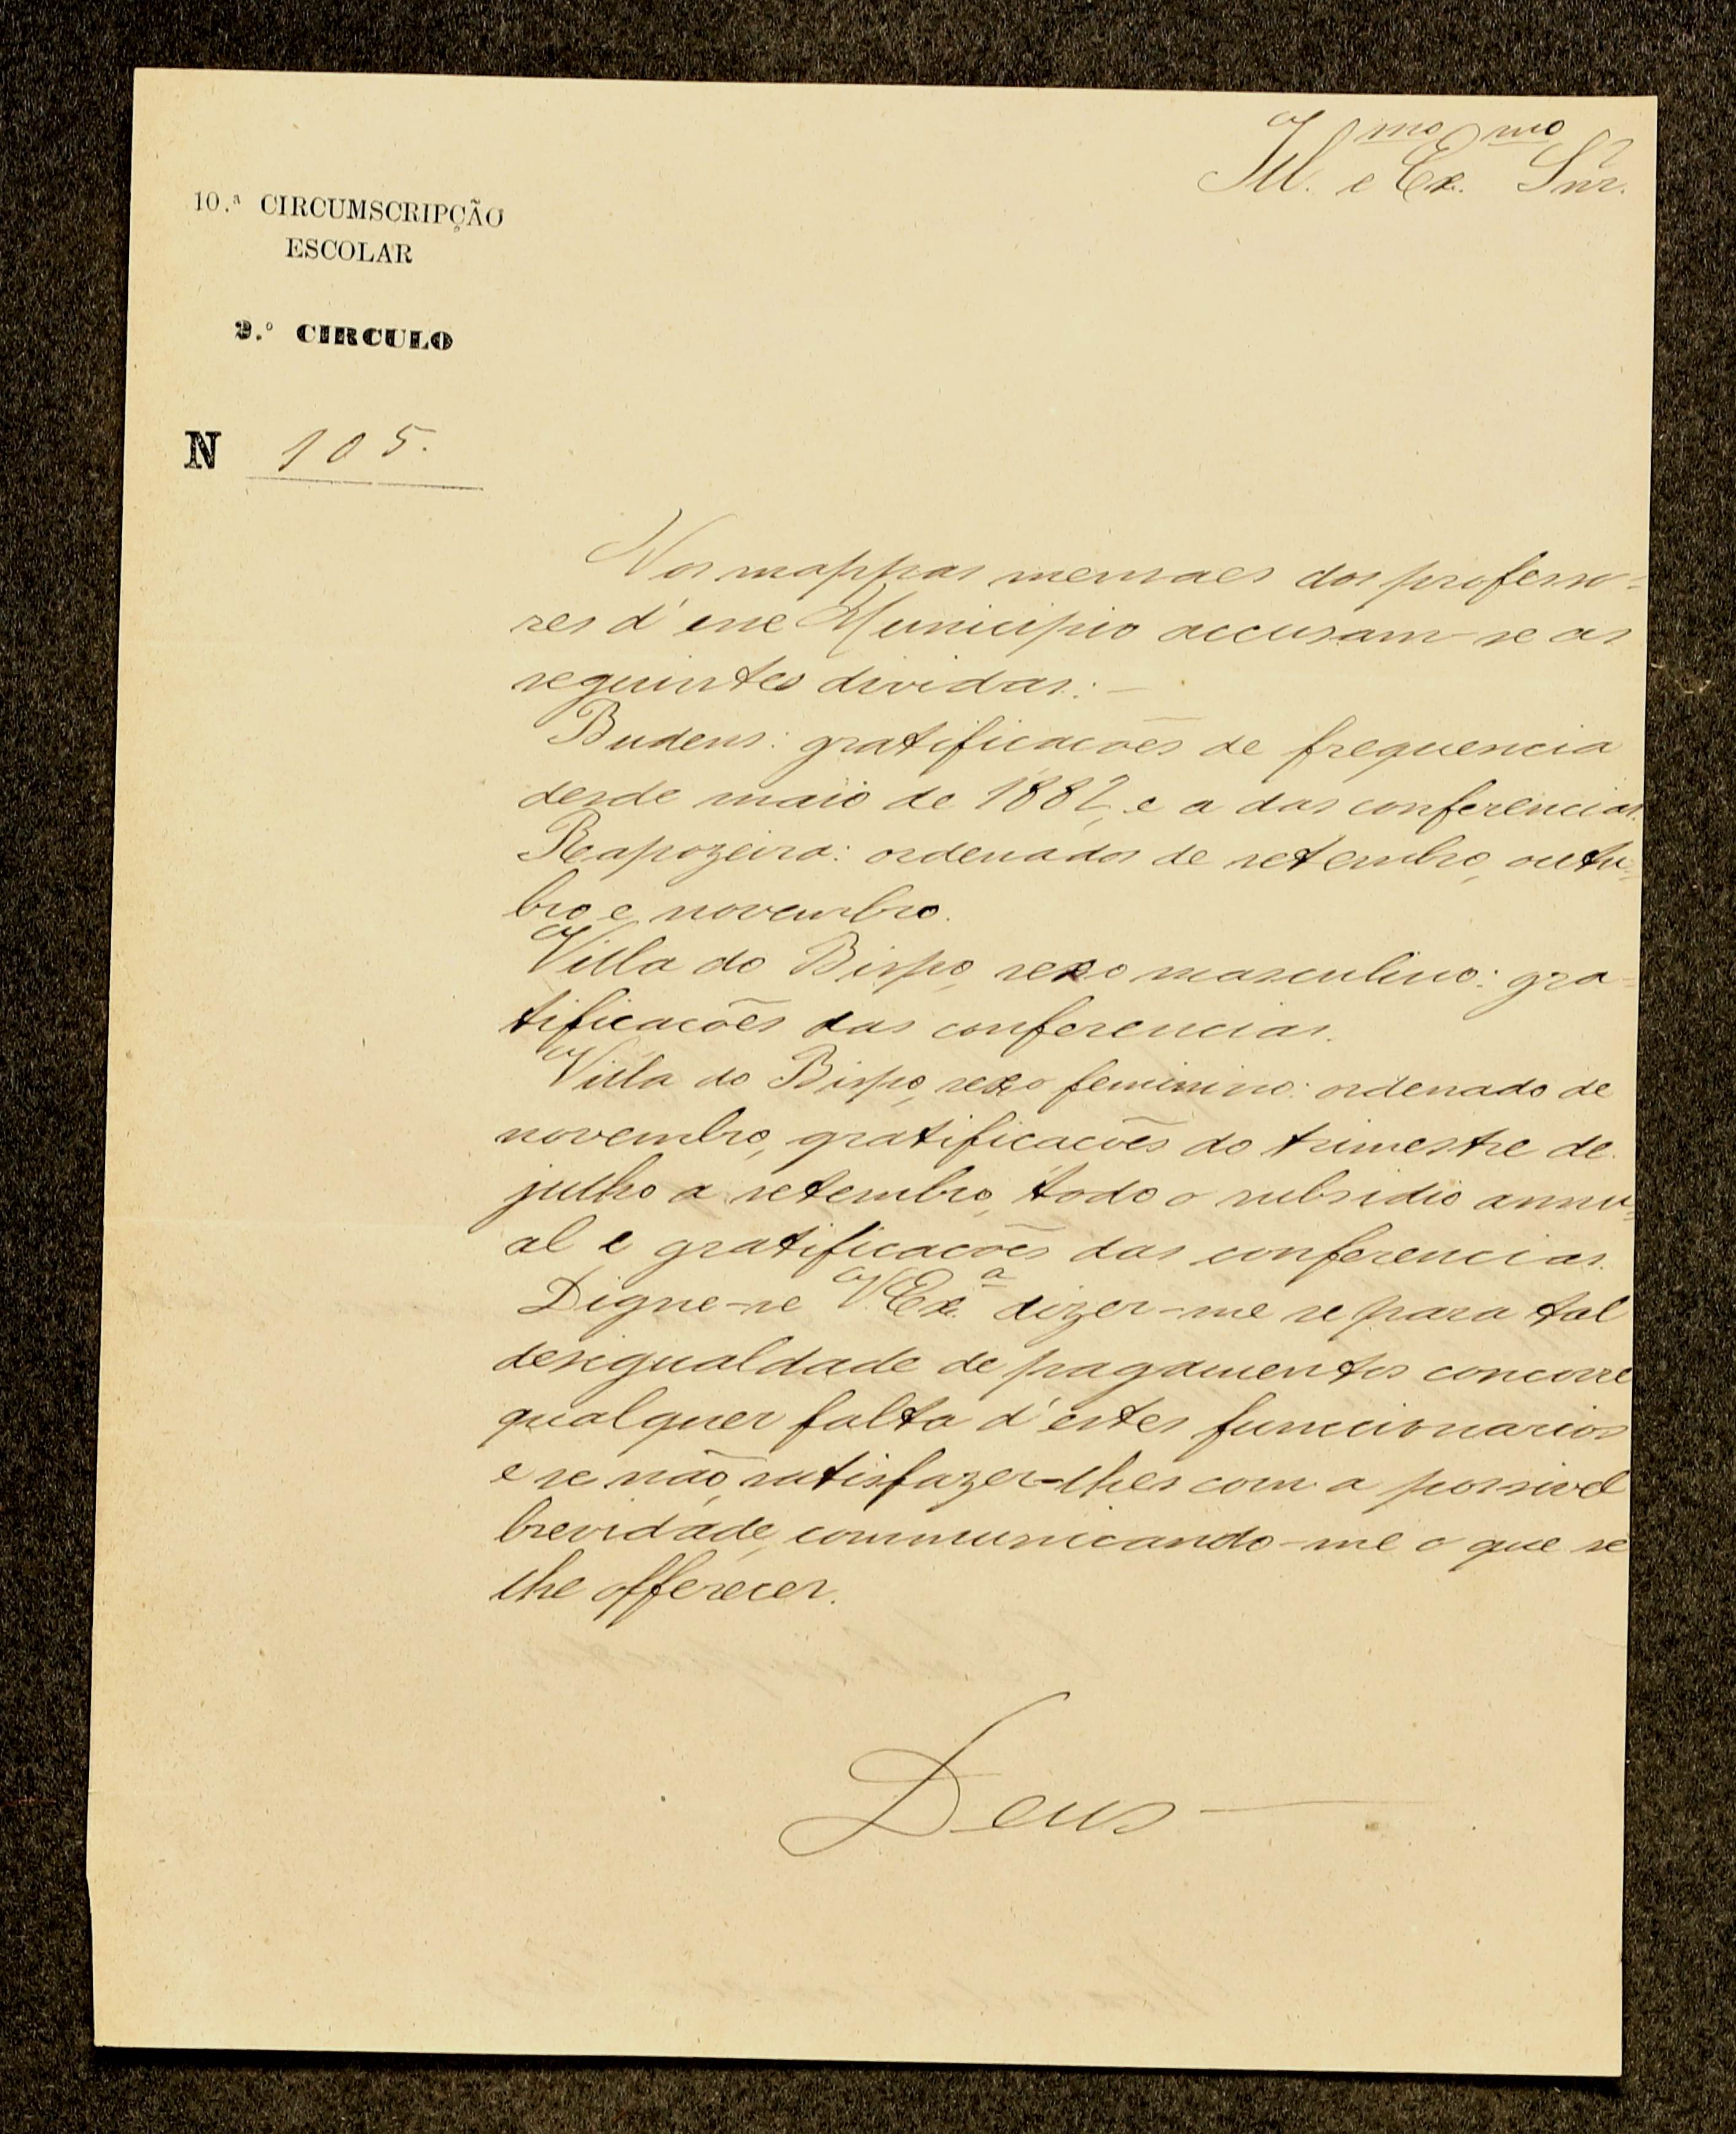 Ill.mo e Ex.mo Snr.
10.ª CIRCUMSCRIPÇÃO
ESCOLAR
2.º CIRCULO
N 105.
Nos mappas mensaes dos professo-
res d'esse Municipio accusam-se as
seguintes dividas: —
Budens: gratificacões de frequencia
desde maio de 1882, e a das conferencias.
Reapozeira: ordenados de setembro, outu-
bro e novembro.
Villa do Bispo, sexo masculino: gra-
tificacões das conferencias.
Villa do Bispo, sexo feminino: ordenado de
novembro, gratificacões do trimestre de
julho a setembro, todo o subsidio annu-
al e gratificacões das conferencias.
Digne-se V. Ex.ª dizer-me se para tal
desigualdade de pagamentos concorre
qualquer falta d'estes funccionarios
e se não, satisfazer-lhes com a possivel
brevidade, communicando-me o que se
lhe offerecer.
Deus —